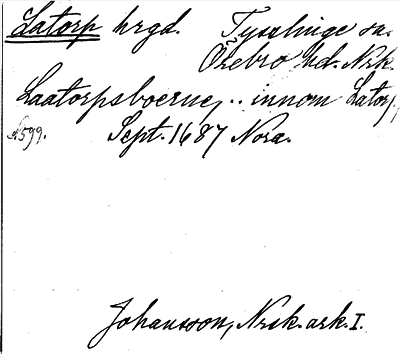 Latorp hrgd. Tysslinge sn.
Örebro hd. Nrk.
Laatorpsboerne, .. innom Latorp,
s. 599. Sept. 1687 Nora.
Johansson, Nrsk. ark. I.